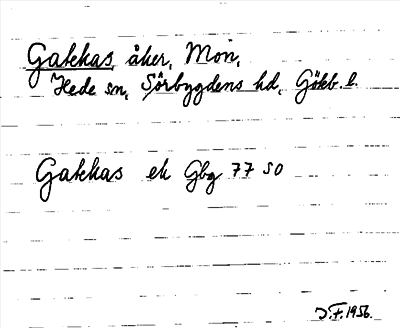 Gakkas, åker, Mon,
Hede sn, Sörbygdens hd, Götb. l.
Gakkas ek Gbg 77 SO
J.F. 1956.